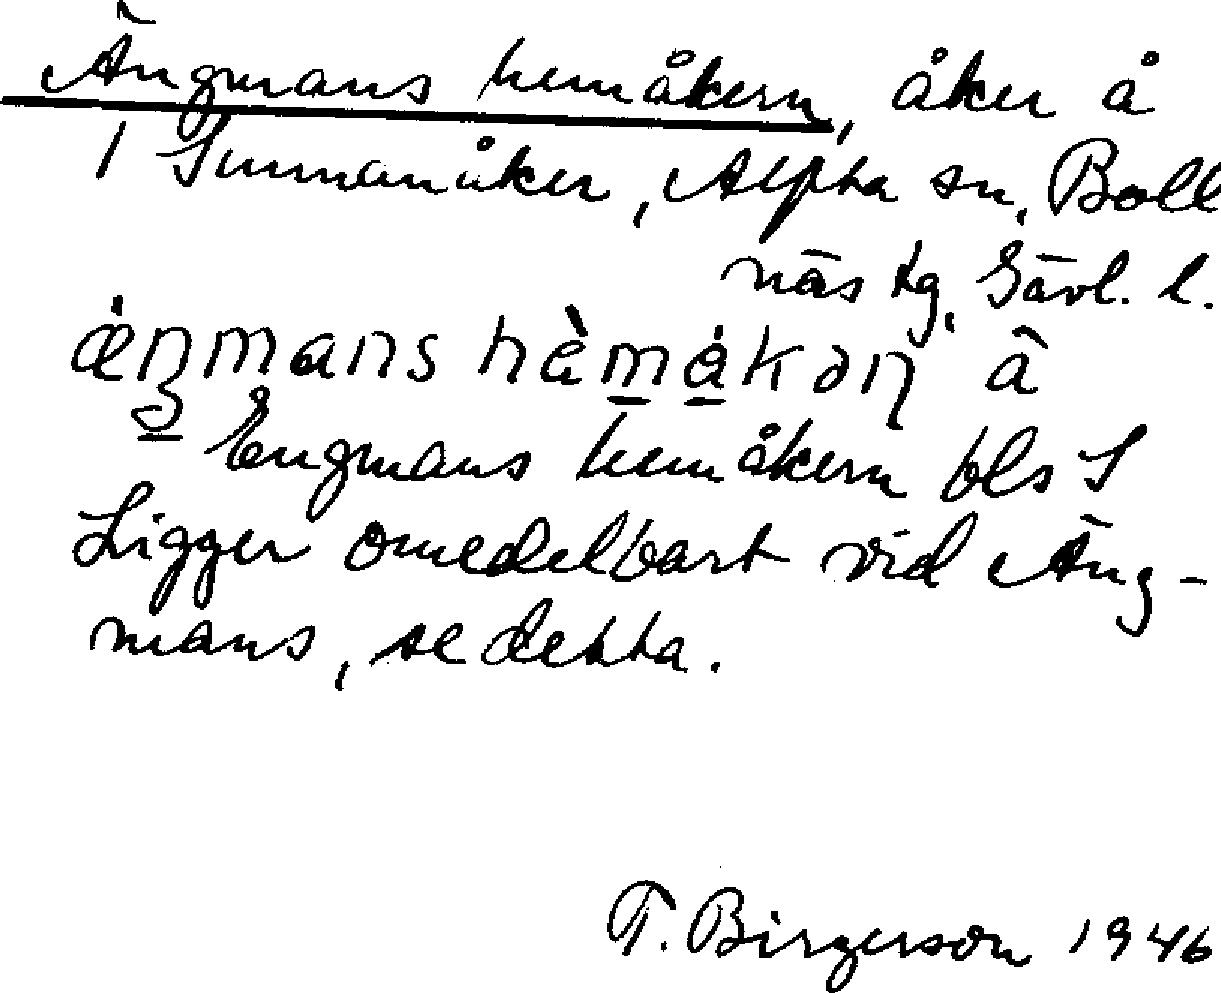 Ängmans hemåkern, åker å
1 Sunnanåker, Alfta sn, Boll
näs tg, Gävl. l.
hèmåkən å
Engmans hemåkern bls S
Ligger omedelbart vid Äng-
mans, se detta.
T. Birgerson 1946